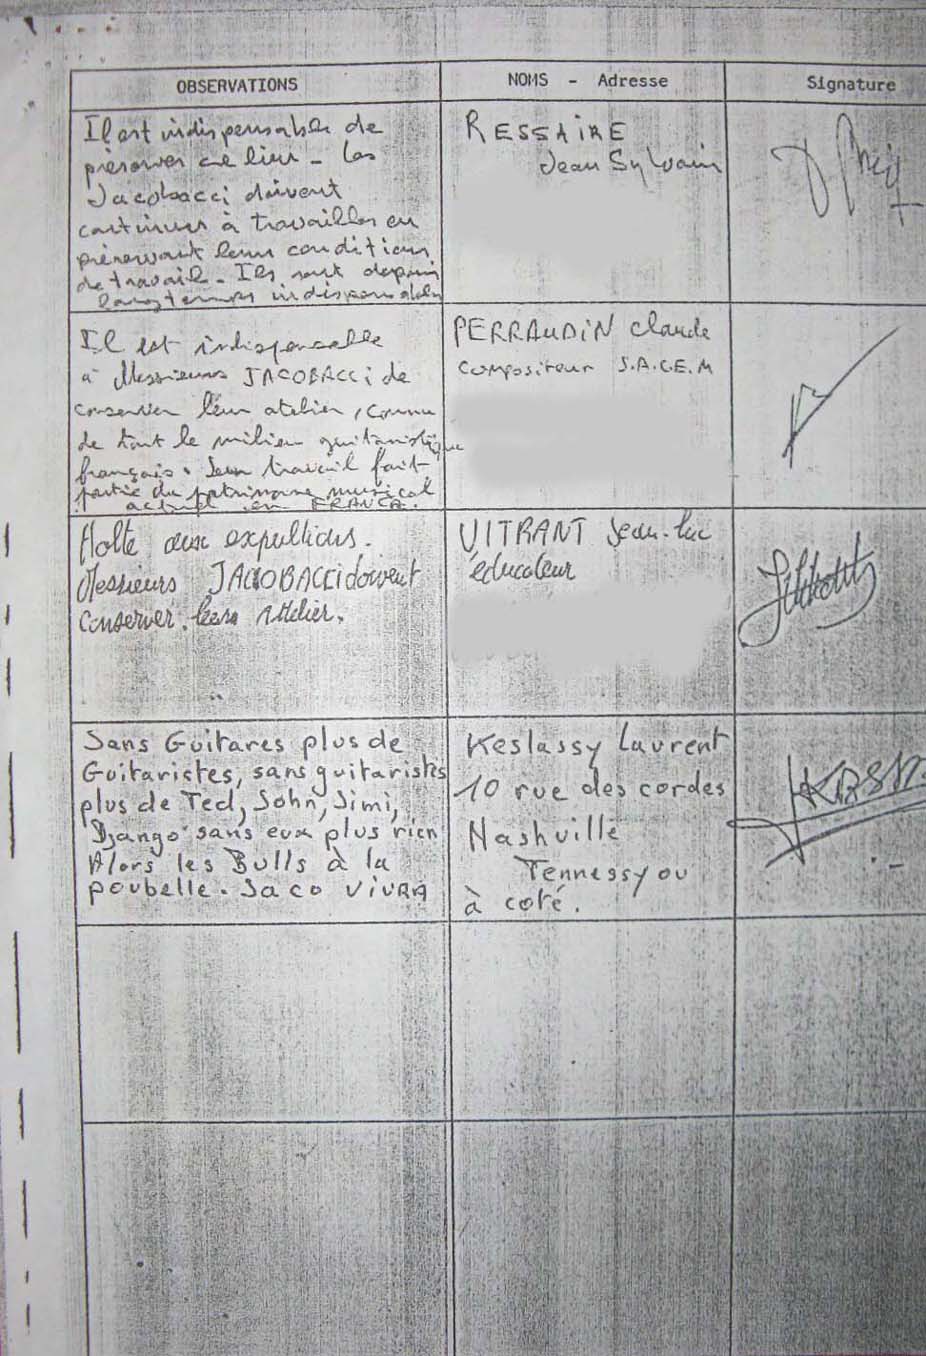 OBSERVATIONS
NOMS - Adresse
Signature
Il est indispensable de
préserver ce lieu - Les
Jacobacci doivent
continuer à travailler en
préservant leurs conditions
de travail - Ils sont depuis
longtemps indispensables
RESSAIRE
Jean Sylvain
Il est indispensable
à Messieurs JACOBACCi de
conserver leur atelier, connu
de tout le milieu guitaristique
français. Leur travail fait
partie du patrimoine musical
actuel en FRANCE.
PERRAUDiN Claude
Compositeur S.A.C.E.M
Halte aux expultions.
Messieurs JACOBACCi doivent
conserver leurs Atelier.
VITRANT Jean-Luc
éducateur
Sans Guitares plus de
Guitaristes, sans guitaristes
plus de Ted, John, Jimi,
Django sans eux plus rien
Alors les Bulls à la
poubelle. Jaco ViVRA
Keslassy Laurent
10 rue des cordes
Nashville
Tennessy ou
à coté.